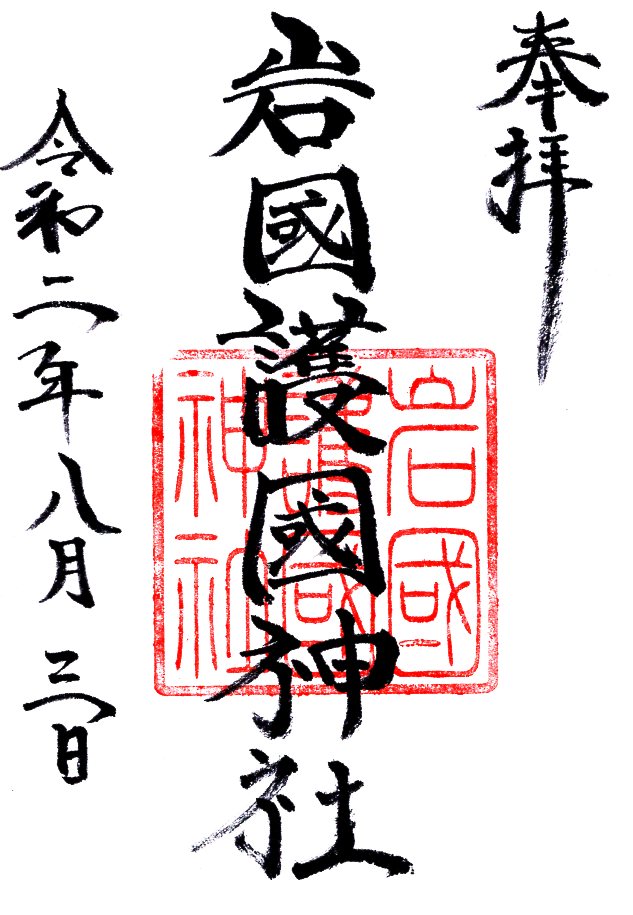 奉拝
岩國護國神社
岩國
護國
神社
令和二年八月三日